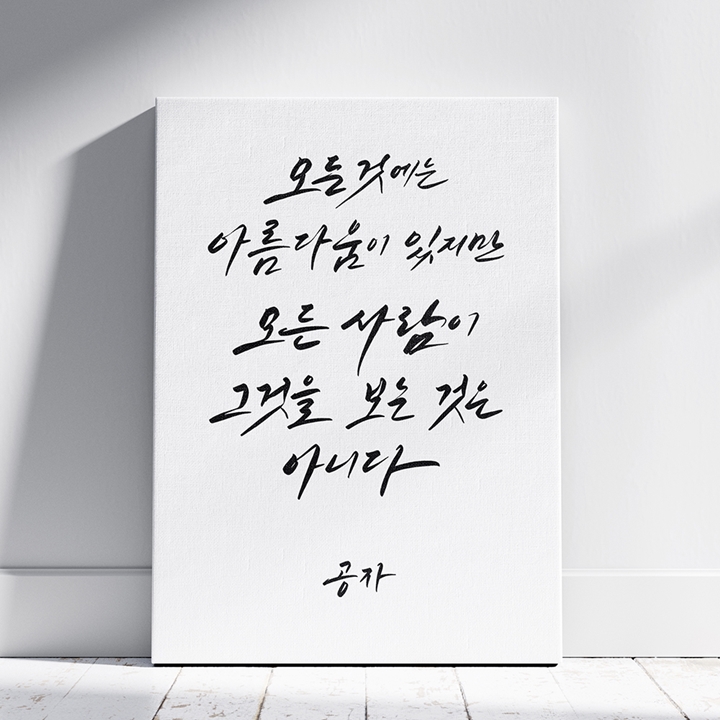 모든 것에는
아름다움이 있지만
모든 사람이
그것을 보는 것은
아니다
공자